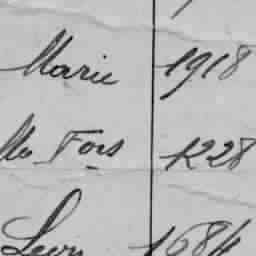 Marie 1918
Fois 1228
Leon 1684